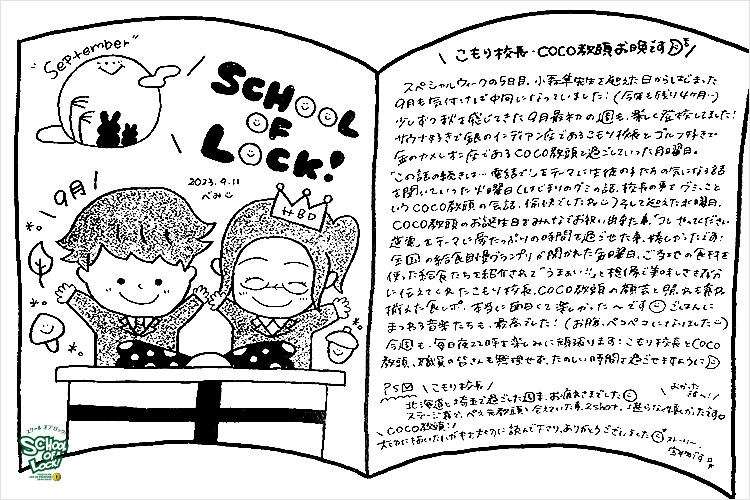 "September"
SCHOOL
OF
LOCK!
2023.9.11
べみ
9月
HBD
スクール オブ ロック!
SCHOOL
OF
LOCK!
こもり校長・COCO教頭お晩です
スペシャルウィークの5日目、小森隼先生を迎えた日からはじまった
9月も気付けば中旬になっていました！(今年も残り4ヶ月…)
少しずつ秋を感じてきた9月最初の週も、楽しく登校してました！
サウナ好きで銀のインディアン座であるこもり校長とゴルフ好きで
金のカメレオン座であるCOCO教頭と過ごしていった月曜日。
"この話の続きは…電話で"をテーマに生徒の子たちの気になる話
を聞いていった火曜日(はじまりのグミの話、校長の事をグミっこと
いうCOCO教頭の会話、愉快でしたね)そして迎えた水曜日。
COCO教頭のお誕生日をみんなでお祝い出来た事、"コレ やってください
逆電"をテーマに
の時間を過ごせた事、嬉しかったです！
全国の給食自慢グランプリが開かれた毎日曜日、ご当地の食材を
使った給食たちを紹介されて"うまぁい"と想像で美味しさを存分
に伝えてくれたこもり校長、COCO教頭の顔芸と
揃えた食レポ、本当に面白くて楽しかった〜です ごはんに
まつわる音楽たちも、最高でした！(お腹、ペコペコになっていました)
今週も、毎日夜22時を楽しみに頑張ります！こもり校長とCOCO
教頭、職員の皆さんも無理せず、たのしい時間を過ごせますように
PS
こもり校長
北海道と埼玉で過ごした週末、お疲れさまでした
よかった
COCO教頭！
大切に描いたいがもを大切に読んで下さり、ありがとうございました